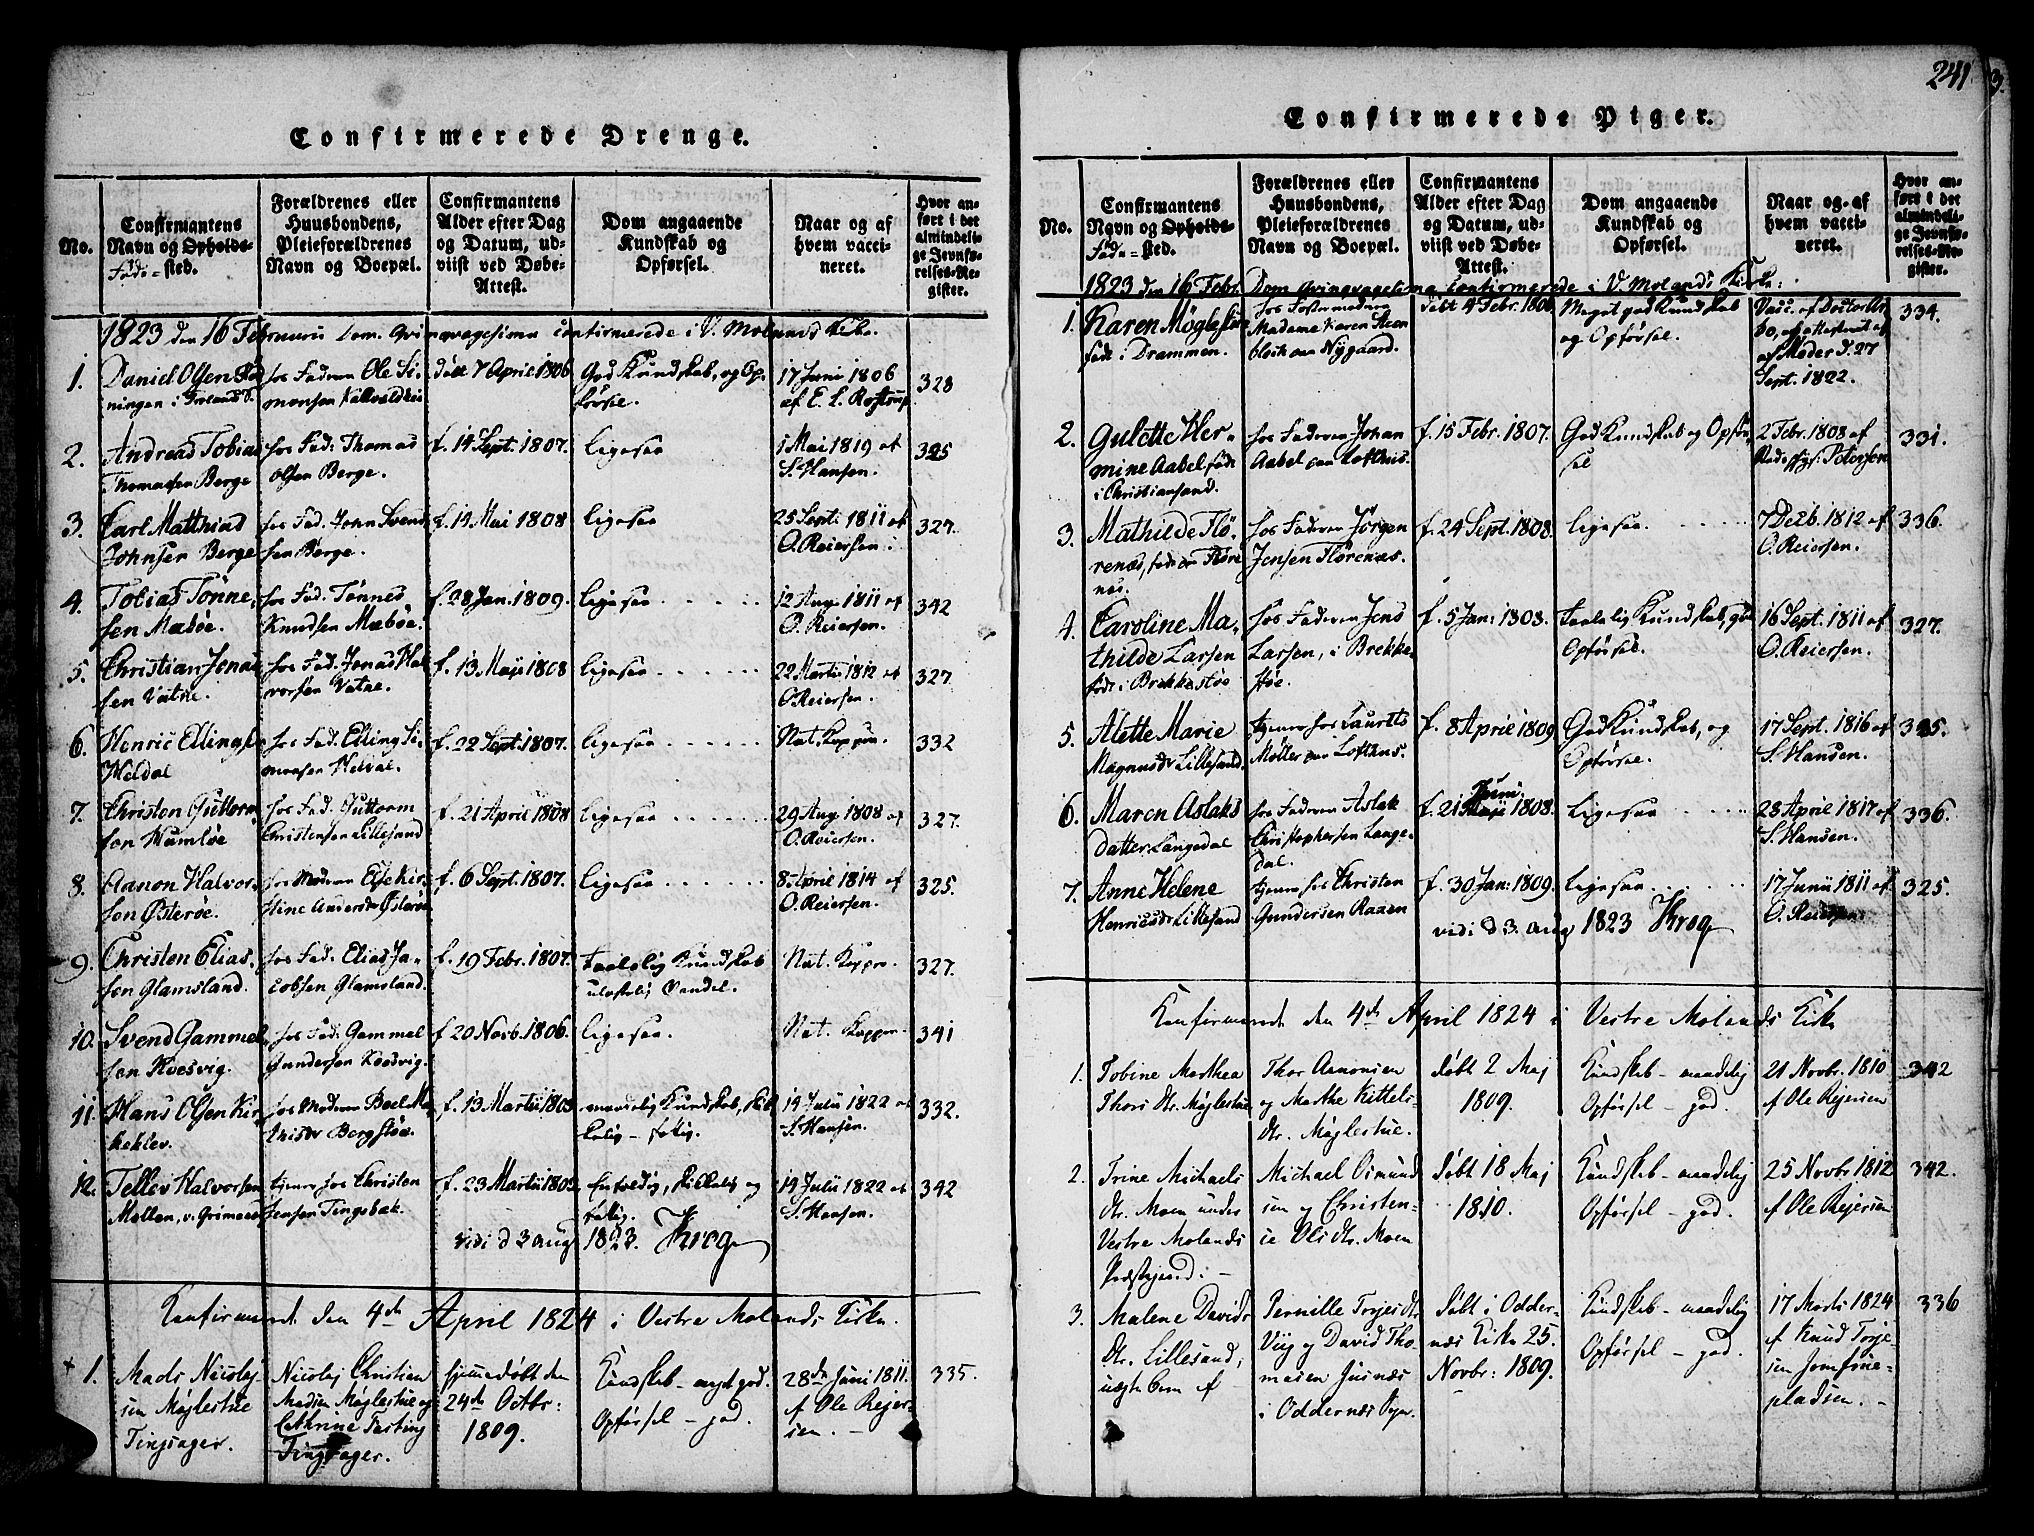 241
Confirmerede Drenge.
No.
Confirmantens
Navn og Opholds-
Føde=sted.
Forældrenes eller
Huusbondens,
Pleieforældrenes
Navn og Boepæl.
Confirmantens
Alder efter Dag
og Datum, ud-
viist ved Døbe-
Attest.
Dom angaaende
Kundskab og
Opførsel.
Naar og af
hvem vacci-
neret.
Hvor an-
ført i det
almindeli-
ge Jevnfø-
relses-Re-
gister.
1823 den 16 Februarii Dom. Qvinqvagesima confirmerede i V. Molands Kirke.
1.
Daniel Olsen
ningen i
hos Faderen Ole Si-
monsen
døbt 7 April 1806
God Kundskab, og Op-
førsel.
17 Juni 1806
af E. L. Rostrup
328
2.
Andreas Tobias
Thomassen Berge
hos Fad: Thomas
Olsen Berge.
f. 14 Sept. 1807.
ligesaa
1 Mai 1819 af
S. Hansen.
325
3.
Carl Matthias
Johnsen Berge
hos Fad. John Svend
sen Berge.
f. 14 Mai 1808
ligesaa
25 Sept: 1811 af
O. Reiersen.
327.
4.
Tobias Tønne,
sen Mæbøe.
hos Fad. Tønnes
Knudsen Mæbøe.
f. 28 Jan. 1809.
ligesaa
12 Aug 1811 af
O. Reiersen.
342
5.
Christian Jonas
sen Vatne.
hos Fad. Jonas Hal
vorsen Vatne.
f. 13 Maji 1808
ligesaa
22 Martii 1812 af
O Reiersen.
327
6.
Henric Ellings.
Heldal
hos Fad. Elling Si-
monsen Heldal.
f. 22 Sept. 1807.
ligesaa
Nat. Kopper.
332
7.
Christen Guttorm
sen Humløe
hos Fad. Guttorm
Christensen Lillesand
f. 21 April 1808
ligesaa
29 Aug 1808 af
O. Reiersen.
327.
8.
Aanon Halvor,
sen Østerøe.
hos Moderen
stine Andersdr Østerøe
f. 6 Sept. 1807.
ligesaa
8 April 1814 af
O. Reiersen.
325.
9.
Christen Elias,
sen Glamsland.
hos Fad. Elias Ja-
cobsen Glamsland.
f. 19 Febr. 1807.
Taalelig Kundskab
ulastelig Vandel.
Nat. Kopper.
327.
10.
Svend Gammel
sen Kosvig.
hos Fad: Gammel
Gundersen Kosvig.
f. 20 Novb. 1806.
ligesaa.
Nat. Kopper.
341
11.
Hans Olsen Kir,
keklev.
hos Moderen Boel Ma
thisdr Bergstøe.
f. 13 Martii 1805
maadelig Kundskab, skik
kelig - fattig.
14 Julii 1822 af
S. Hansen.
332.
12.
Tellev Halvorsen
Mollen, v. Grimaes
tjener hos Christen
Jensen Tingsbak.
f. 23 Martii 1805.
Enfoldig, skikkelig og
fattig.
14 Julii 1822 af
S. Hansen.
342
vidi d 3 aug 1823. Krog
Konfirmeret den 4de April 1824 i Vestre Molands Kirke.
+ 1.
Mads Nicolaj
sen Møglestue
Tingsager.
Nicolaj Christian
Madsen Møglestue og
Cathrine
Tingsager.
hjemmedøbt den
24de Octbr:
1809.
Kundskab - meget god.
Opførsel - god.
28de Juni 1811.
af Ole Rejer-
sen. -
335.
Confirmerede Piger.
No.
Confirmantens
Navn og Opholds-
Føde=sted.
Forældrenes eller
Huusbondens,
Pleieforældrenes
Navn og Boepæl.
Confirmantens
Alder efter Dag
og Datum, ud-
viist ved Døbe-
Attest.
Dom angaaende
Kundskab og
Opførsel.
Naar og af
hvem vacci-
neret.
Hvor an-
ført i det
almindeli-
ge Jevnfø-
relses-Re-
gister.
1823 den 16 Febr. Dom Qvinqvagesima confirmerede i V. Molands Kirke:
1.
Karen Møglestue
født i Drammen.
hos Fostermoderen
Madame Karen Steen
bloch paa Nygaard.
døbt 4 Febr. 1806
Meget god Kundskab
og Opførsel.
Vacc. af Doctor
bo, attesteret af
af Moder d. 27
Sept. 1822.
334.
2.
Gulette Her-
mine Aabel født
i Christiansand.
hos Faderen Johan
Aabel paa Lofthus.
f. 15 Febr. 1807.
God Kundskab og Opfør
sel
2 Febr. 1808 af
Petersen
331.
3.
Mathilde Flø-
renæs, født paa Fløre
næs.
hos Faderen Jørgen
Jensen Flørenæs.
f. 24 Sept. 1808.
ligesaa
7 Decb. 1812 af
O. Reiersen.
336.
4.
Caroline Ma,
thilde Larsen
født i Brekkestøe
hos Faderen Jens
Larsen, i Brekke,
støe.
f. 5 Jan: 1808.
Taalelig Kundskab, god
Opførsel.
16 Sept. 1811 af
O. Reiersen.
327.
5.
Alette Marie
Magnusdr Lillesand.
tjener hos Laurets
Møller paa Lofthus.
f. 8 April 1809
God Kundskab, og
Opførsel.
17 Sept. 1816 af
S. Hansen.
325.
6.
Maren Aslaks
datter Langedal
hos Faderen Aslak
Christophersen Lange-
dal.
Junii
f. 21 Maji 1808.
ligesaa
28 April 1817 af
S. Hansen.
336.
7.
Anne Helene
Henricsdr Lillesand
tjener hos Christen
Gundersen Raaen
f. 30 Jan: 1809.
ligesaa
17 Junii 1811 af
O. Reiersen
325.
vidi d 3. aug 1823 Krog
Konfirmeret den 4de April 1824 i Vestre Molands Kirke
1.
Tobine Marthea
Thors Dr. Møglestue
Thor Aanonsen
og Marthe Kittels-
Dr. Møglestue.
døbt 2 Maj
1809.
Kundskab - maadelig
Opførsel - god.
21 Novbr. 1810
af Ole Rejersen
342
2.
Trine Michaels
Dr. Moen under
Vestre Molands
Præstegjeld. -
Michael Osmund
sen og Christen-
ie Olsdtr. Moen
døbt 18 Maj
1810.
Kundskab - maadelig
Opførsel - god.
25 Novbr 1812
af Ole Rejersen
342.
3.
Malene Davids
Dr. Lillesand,
uægte Barn af -
Pernille Torjesdtr.
Viig og David Tho-
masen Justnæs
i Oddernæs Sogn.
døbt i Odder-
næs Kirke 25.
Novbr: 1809.
Kundskab - maadelig
Opførsel - god.
17 Marts 1824
af Knud Torje-
sen Jomfrue-
pladsen. -
336